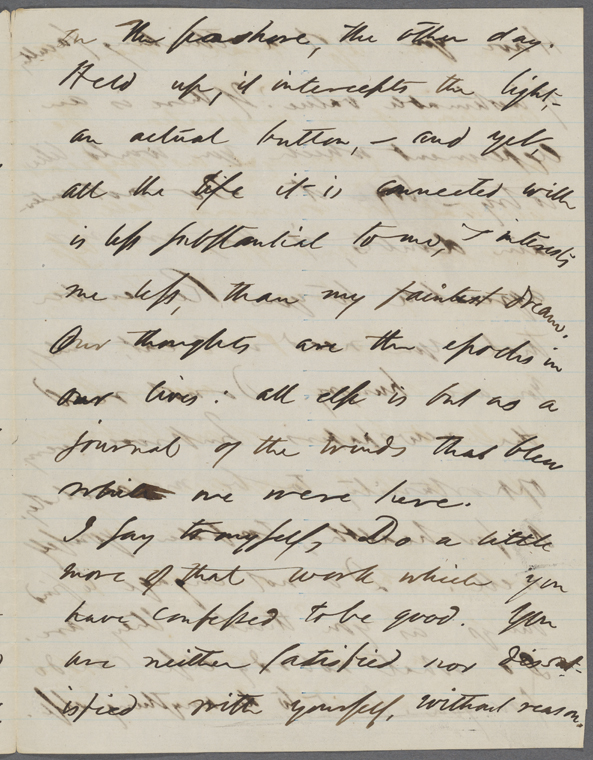 on the seashore, the other day.
Held up, it intercepts the light,–
an actual button, – and yet,
all the life it is connected with
is less substantial to me, & interests
me less, than my faintest dream.
Our thoughts are the epochs in
our lives: all else is but as a
journal of the winds that blew
while we were here.
I say to myself, Do a little
more of that work which you
have confessed to be good. You
are neither satisfied nor dissat-
isfied with yourself, without reason.